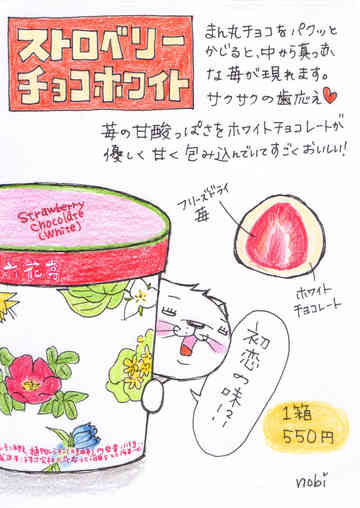 ストロベリー
チョコホワイト
まん丸チョコをパクッと
かじると、中から真っ赤
な苺が現れます。
サクサクの歯応え♥
苺の甘酸っぱさをホワイトチョコレートが
優しく甘く包み込んでいてすごくおいしい!
Strawberry
Chocolate
(White)
六花亭
フリーズドライ
苺
ホワイト
チョコレート
初恋の味!?
1箱
550円
nobi